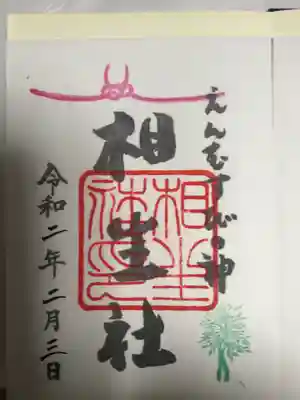 えんむすびの神
相生社
相生社印
令和二年二月三日